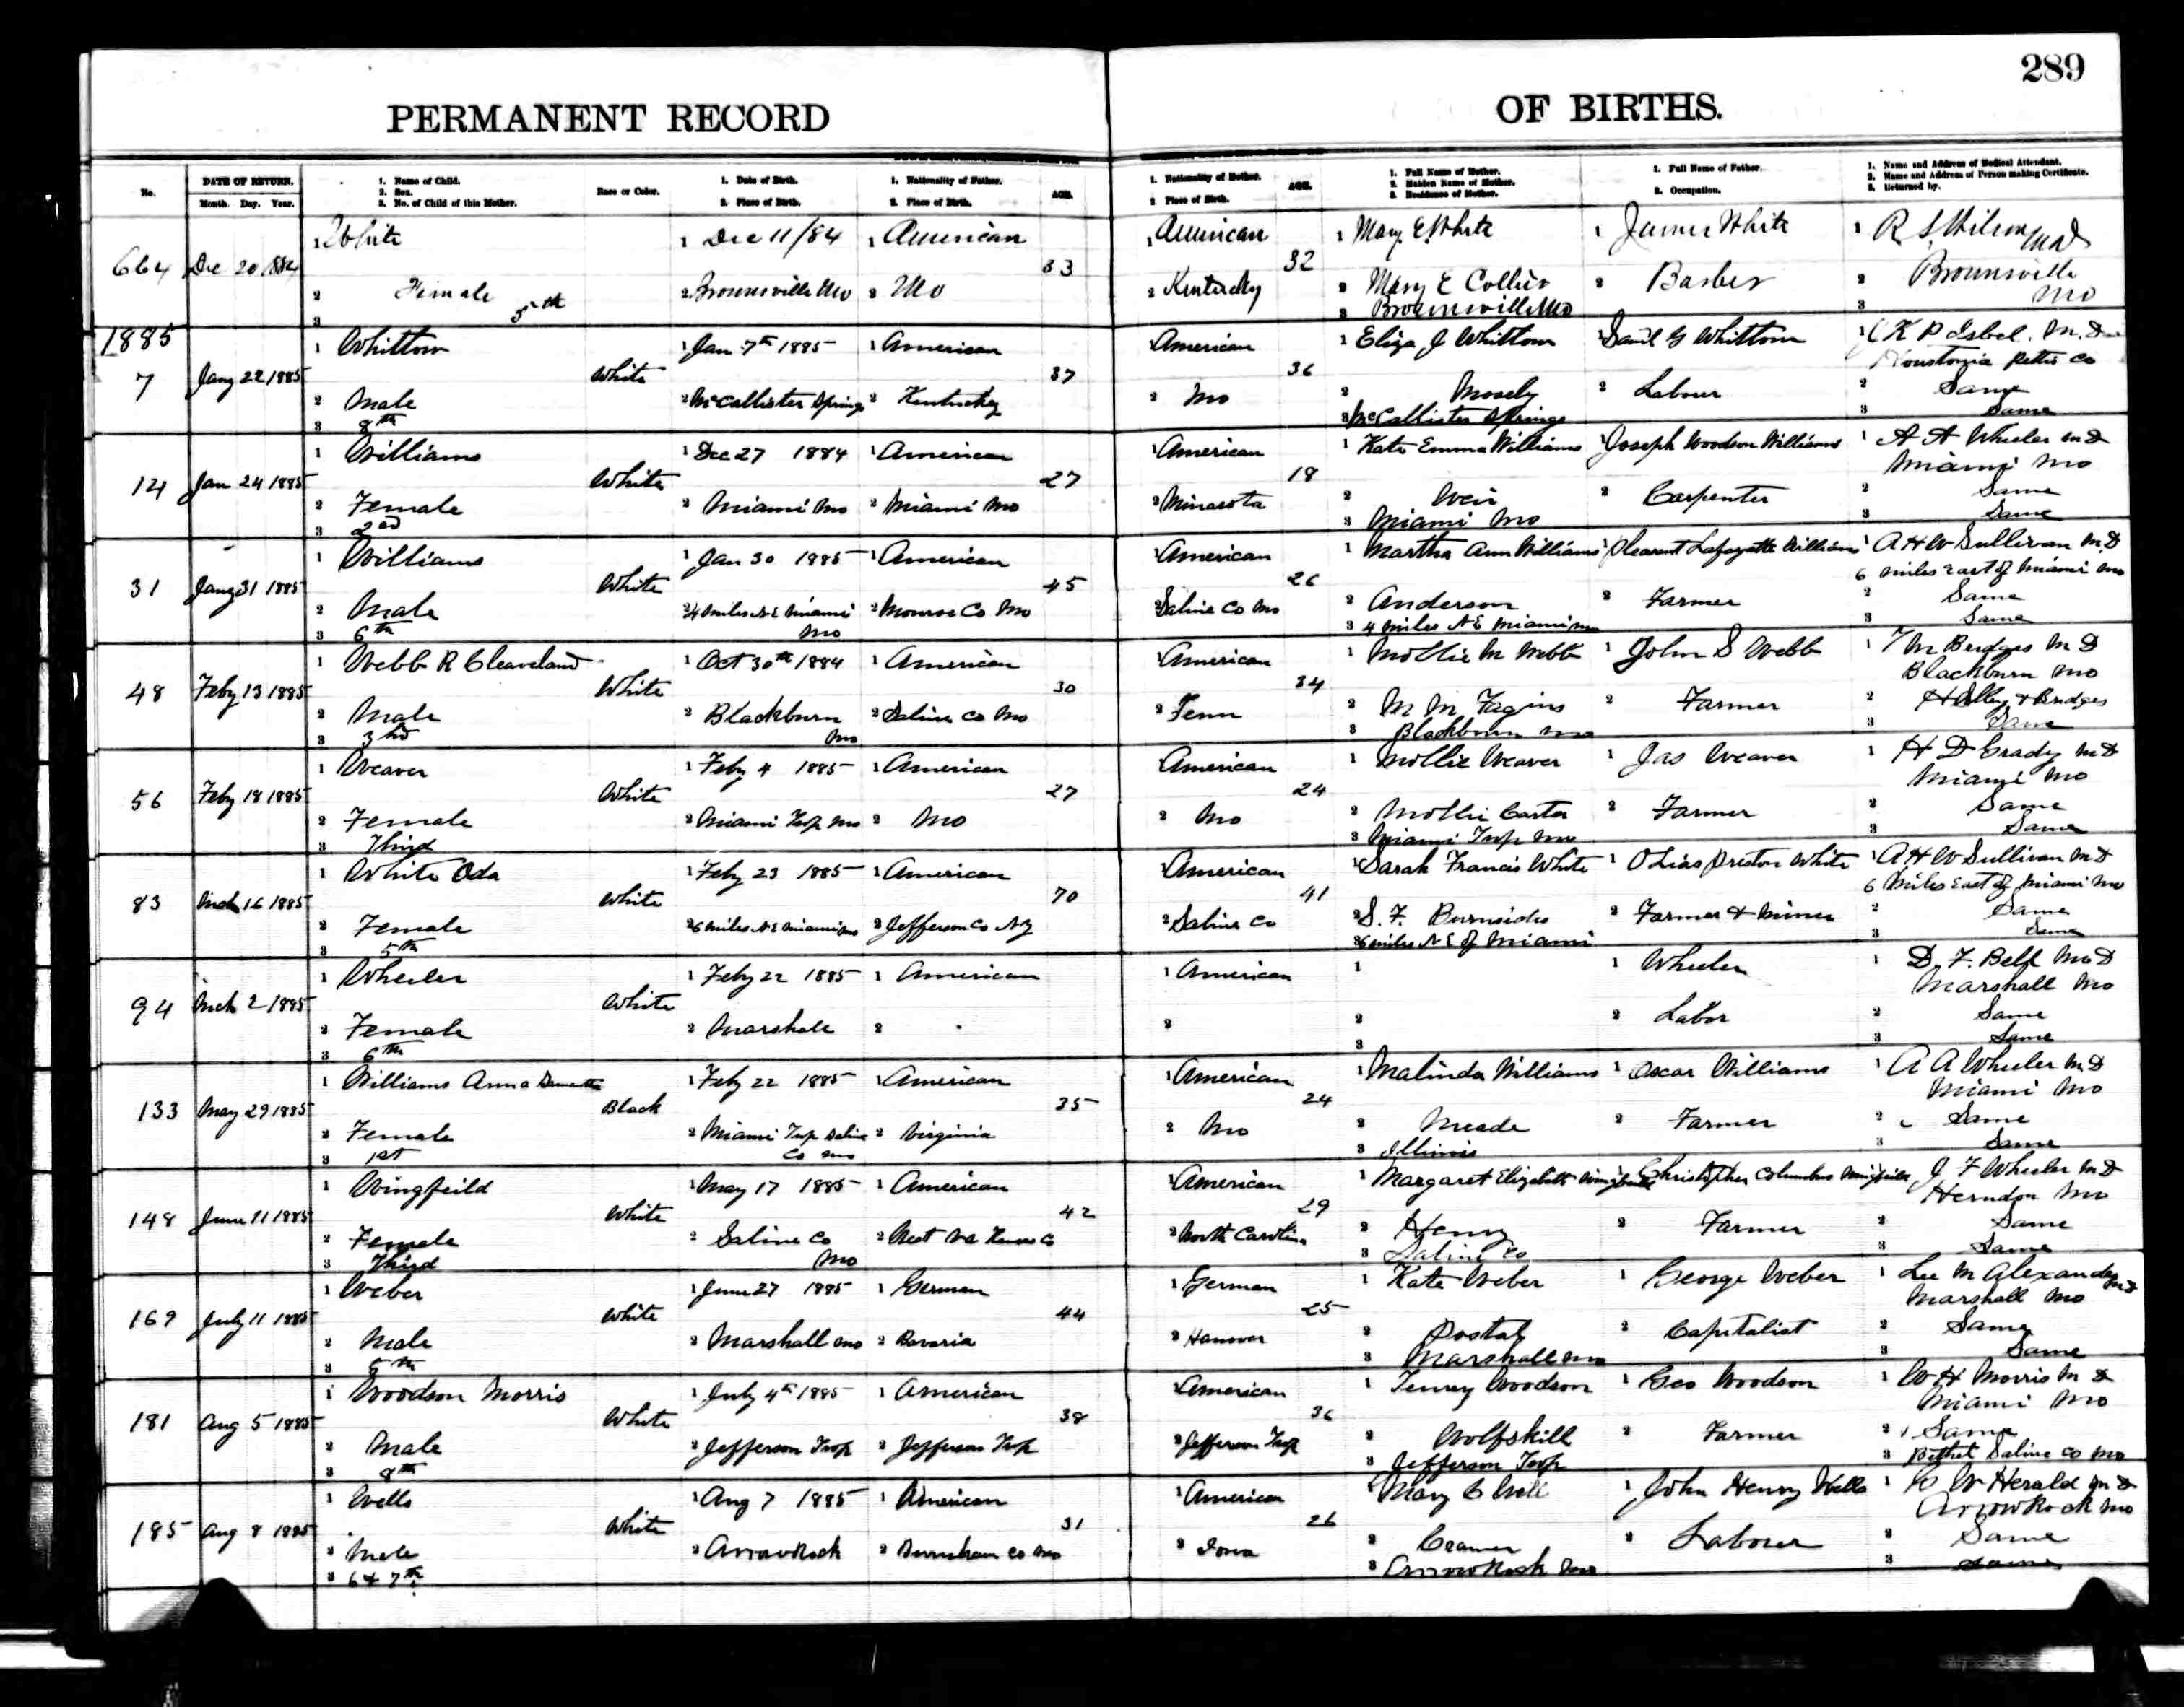 289
PERMANENT RECORD OF BIRTHS.
No. DATE OF RETURN. Month. Day. Year. 1. Name of Child. 2. Sex. 3. No. of Child of this Mother. Race or Color. 1. Date of Birth. 2. Place of Birth. 1. Nationality of Father. 2. Place of Birth. AGE. 1. Nationality of Mother. 2 Place of Birth. AGE. 1. Full Name of Mother. 2. Maiden Name of Mother. 3. Residence of Mother. 1. Full Name of Father. 2. Occupation. 1. Name and Address of Medical Attendant. 2. Name and Address of Person making Certificate. 3. Returned by.
1 White 1 Dec 11/84 1 American 1 American 1 Mary E. White 1 James White 1 R S Wilson MD
664 Dec 20 1884 33 32
2 Female 2 Brownsville Mo 2 Mo 2 Kentucky 2 Mary E Collier 2 Barber 2 Brownsville Mo
3 5th 3 Brownsville Mo 3
1885
1 Whittom 1 Jan 7th 1885 1 American 1 American 1 Eliza J Whittom G Whittom 1 K P Isbel. M.D. Houstonia Pettis Co
7 Jany 22 1885 White 37 36
2 Male 2 McCallister Springs 2 Kentucky 2 Mo 2 Mosely 2 Laborer 2 Same
3 8th 3 McCallister Springs 3 Same
1 Williams 1 Dec 27 1884 1 American 1 American 1 Kate Emma Williams 1 Joseph Woodson Williams 1 A A Wheeler M D Miami Mo
14 Jan 24 1885 White 27 18
2 Female 2 Miami Mo 2 Miami Mo 2 Minesota 2 Weir 2 Carpenter 2 Same
3 2nd 3 Miami Mo 3 Same
1 Williams 1 Jan 30 1885 1 American 1 American 1 Martha Ann Williams 1 Pleasant Lafayette Williams 1 A H W Sullivan M D 6 miles East of Miami Mo
31 Jany 31 1885 White 45 26
2 Male 2 4 miles N E Miami Mo 2 Monroe Co Mo 2 Saline Co Mo 2 Anderson 2 Farmer 2 Same
3 6th 3 4 miles N E Miami Mo 3 Same
1 Webb R Cleaveland 1 Oct 30th 1884 1 American 1 American 1 Mollie M Webb 1 John S Webb 1 M Bridges M D Blackburn Mo
48 Feby 13 1885 White 30 34
2 Male 2 Blackburn Mo 2 Saline Co Mo 2 Tenn 2 M M Fagins 2 Farmer 2 & Bridges
3 3rd 3 Blackburn Mo 3 Same
1 Weaver 1 Feby 4 1885 1 American American 1 Mollie Weaver 1 Jas Weaver 1 H D Grady M D Miami Mo
56 Feby 18 1885 White 27 24
2 Female 2 Miami Twp Mo 2 Mo 2 Mo 2 Mollie Carter 2 Farmer 2 Same
3 Third 3 Miami Twp Mo 3 Same
1 White Oda 1 Feby 23 1885 1 American 1 American 1 Sarah Francis White 1 Preston White 1 A H W Sullivan M D 6 Miles East of Miami Mo
83 Mch 16 1885 White 70 41
2 Female 2 6 miles N E Miami Mo 2 Jefferson Co N Y 2 Saline Co 2 S. F. Burnsides 2 Farmer & Miner 2 Same
3 5th 3 6 miles N E of Miami 3 Same
1 Wheeler 1 Feby 22 1885 1 American 1 American 1 1 Wheeler 1 D. F. Bell M D Marshall Mo
94 Mch 2 1885 White
2 Female 2 Marshall 2 2 2 2 Labor 2 Same
3 6th 3 3 Same
1 Williams Anna 1 Feby 22 1885 1 American 1 American 1 Malinda Williams 1 Oscar Williams 1 A A Wheeler M D Miami Mo
133 May 29 1885 Black 35 24
2 Female 2 Miami Twp Saline Co Mo 2 Virginia 2 Mo 2 Meade 2 Farmer 2 Same
3 1st 3 Illinois 3 Same
1 Wingfeild 1 May 17 1885 1 American 1 American 1 Margaret Elizabeth Wingfeild Christopher Columbus Wingfeild J F Wheeler M D Herndon Mo
148 June 11 1885 White 42 29
2 Female 2 Saline Co Mo 2 West Va Co 2 North Carolina 2 Henry 2 Farmer 2 Same
3 Third 3 Saline Co 3 Same
1 Weber 1 June 27 1885 1 German 1 German 1 Kate Weber 1 George Weber 1 Lee M Alexander M D Marshall Mo
169 July 11 1885 White 44 25
2 Male 2 Marshall Mo 2 Bavaria 2 Hanover 2 Postal 2 Capitalist 2 Same
3 5th 3 Marshall Mo 3 Same
1 Woodson Morris 1 July 4th 1885 1 American 1 American 1 Woodson 1 Geo Woodson 1 W H Morris M D Miami Mo
181 Aug 5 1885 White 38 36
2 Male 2 Jefferson Twp 2 Jefferson Twp 2 Jefferson Twp 2 Wolfskill 2 Farmer 2 Same
3 8th 3 Jefferson Twp 3 Saline Co Mo
1 Wells 1 Aug 7 1885 1 American 1 American 1 Mary C 1 John Henry Wells 1 W Herald M D Arrow Rock Mo
185 Aug 8 1885 White 31 26
2 Male 2 Arrow Rock 2 Co Mo 2 Iowa 2 Cramer 2 Laborer 2 Same
3 6 & 7th 3 Arrow Rock Mo 3 Same